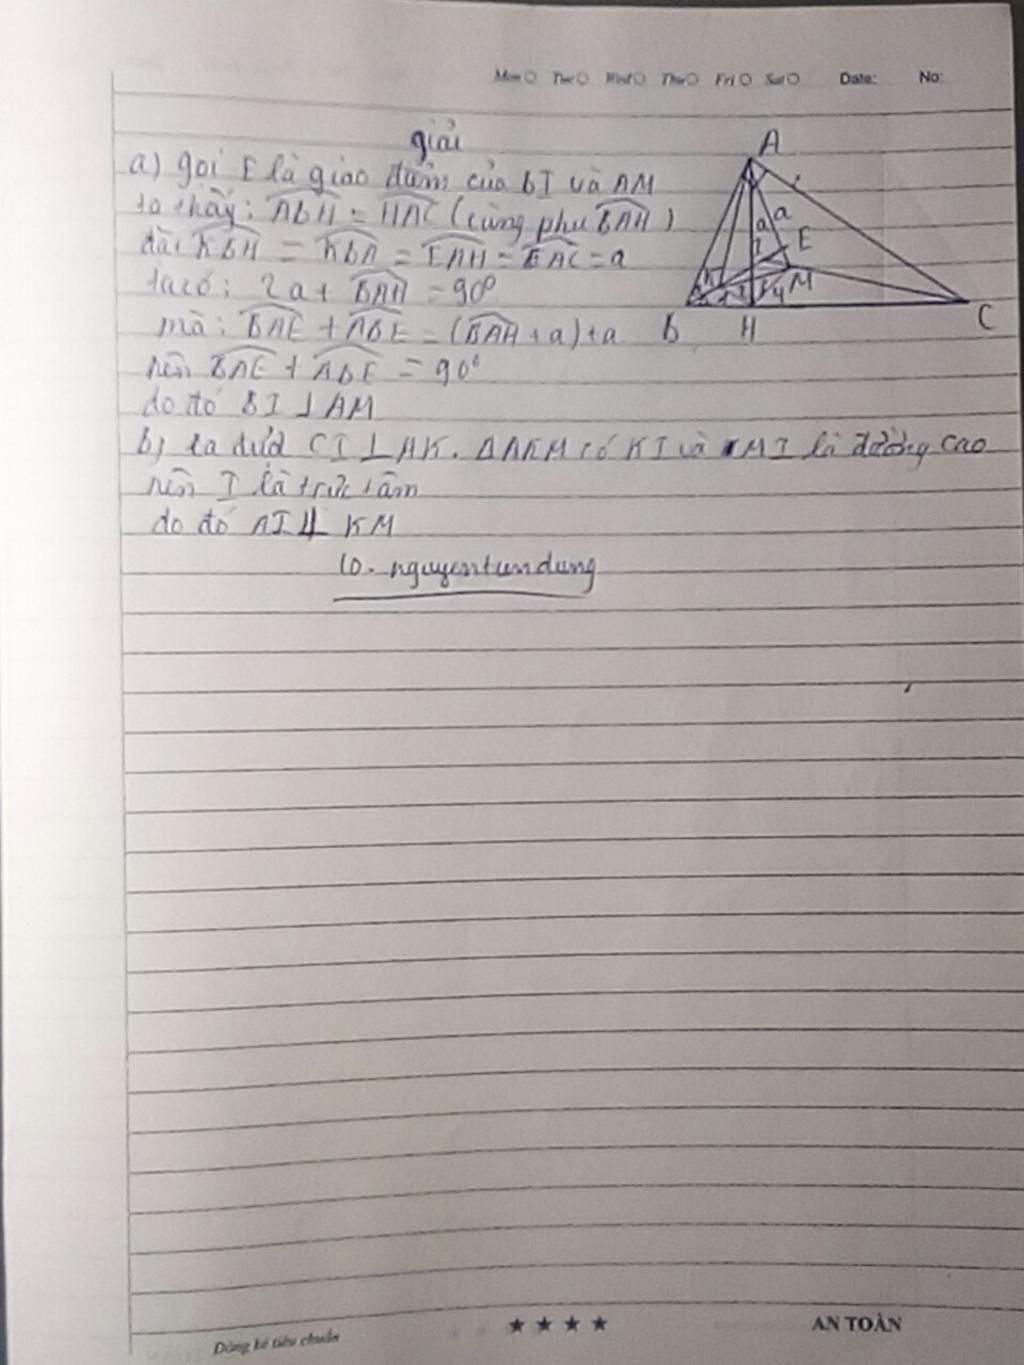 Mon Tue Wed Thu Fri Sat Date: No:
giải
a) gọi E là giao điểm của BI và AM
ta thấy: ABH = HAC (cùng phụ BAH)
KBH = KBA = EAH = EAC = a
ta có: 2a + BAH = 90°
mà: BAE + ABE = (BAH + a) + a
nên BAE + ABE = 90°
do đó BI ⊥ AM
b) ta được CI ⊥ AK. ΔAKM có KI và MI là đường cao
nên I là trực tâm
do đó AI ⊥ KM
A
a
a
I
E
M
B
H
C
nguyentundung
Dòng kẻ tiêu chuẩn ★ ★ ★ ★ AN TOÀN